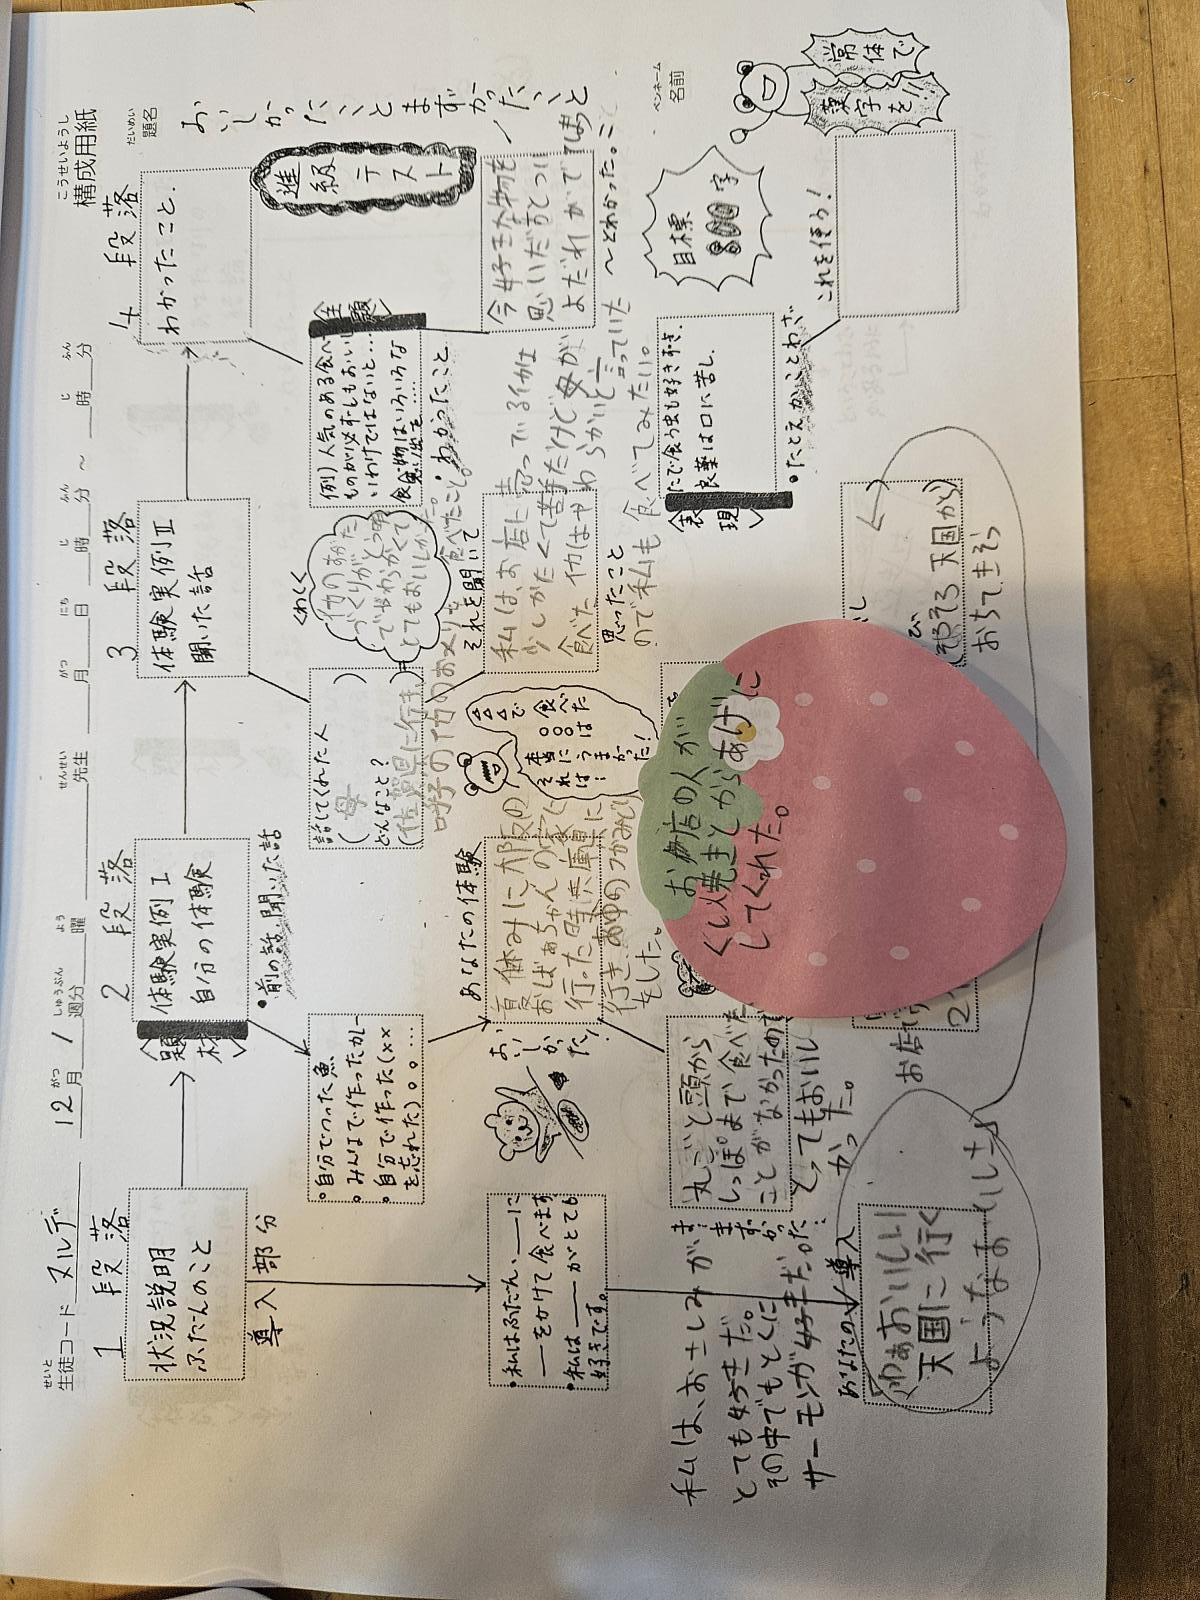 構成用紙
こうせいようし
題名
だいめい
おいしかったことまずかったこと
ペンネーム
名前
生徒コード ヌルデ
せいと
12月 1週分
がつ しゅうぶん
曜
よう
先生
せんせい
月 日 時 分 ~ 時 分
がつ にち じ ふん じ ふん
1 段落
状況説明
ふだんのこと
導入部分
・私はふだん、__に
__をかけて食べます
・私は__がとても
好きです。
あなたの導入
私は、おさしみが、
とても好きだ。
その中でもとくに
サーモンが好きだ。
天国に行く
ような
2 段落
体験実例Ⅰ
自分の体験
〈題材〉
・前の話、聞いた話
・自分でつった魚
・みんなで作ったカレー
・自分で作った(××
を忘れた)。。…
あなたの体験
夏休みに大阪の
おばあちゃんの家で
行った時兵庫県に
行きあゆのつかみどり
をした。
おいしかった!
まずかった!
丸ごと頭から
しっぽまで食べた
ことがなかったので
とってもおいし
かった。
△△で食べた
○○○は
本当にうまかった!
それは!
お店の人が
くし焼きとからあげに
してくれた。
お店で
3 段落
体験実例Ⅱ
聞いた話
話してくれた人
( 母 )
どんなこと?
(佐賀県に行き
呼子のイカのおメリを
食べたこと。
くわしく
イカのおが
づくりがとう明
でやわらかくて
とてもおいしかった
それを聞いて
私はお店に売っているイカは
少しかたくて苦手だけど母が
食べたイカはやわらかいと言っていた
思ったこと
ので私も食べてみたい。
天国から
おちてきそう
4 段落
わかったこと.
進級テスト
〈主題〉
例)人気のある食べ
ものが必ずしもおいし
いわけではないと…
食べ物はいろいろな
思い出を……
・わかったこと
今好きな物を
思いだすとつい
よだれがでて
~とわかった。
〈表現〉
たで食う虫も好き好き.
良薬は口に苦し.
・たとえかことわざ
これを使う!
目標
800字
常体で
漢字を!!